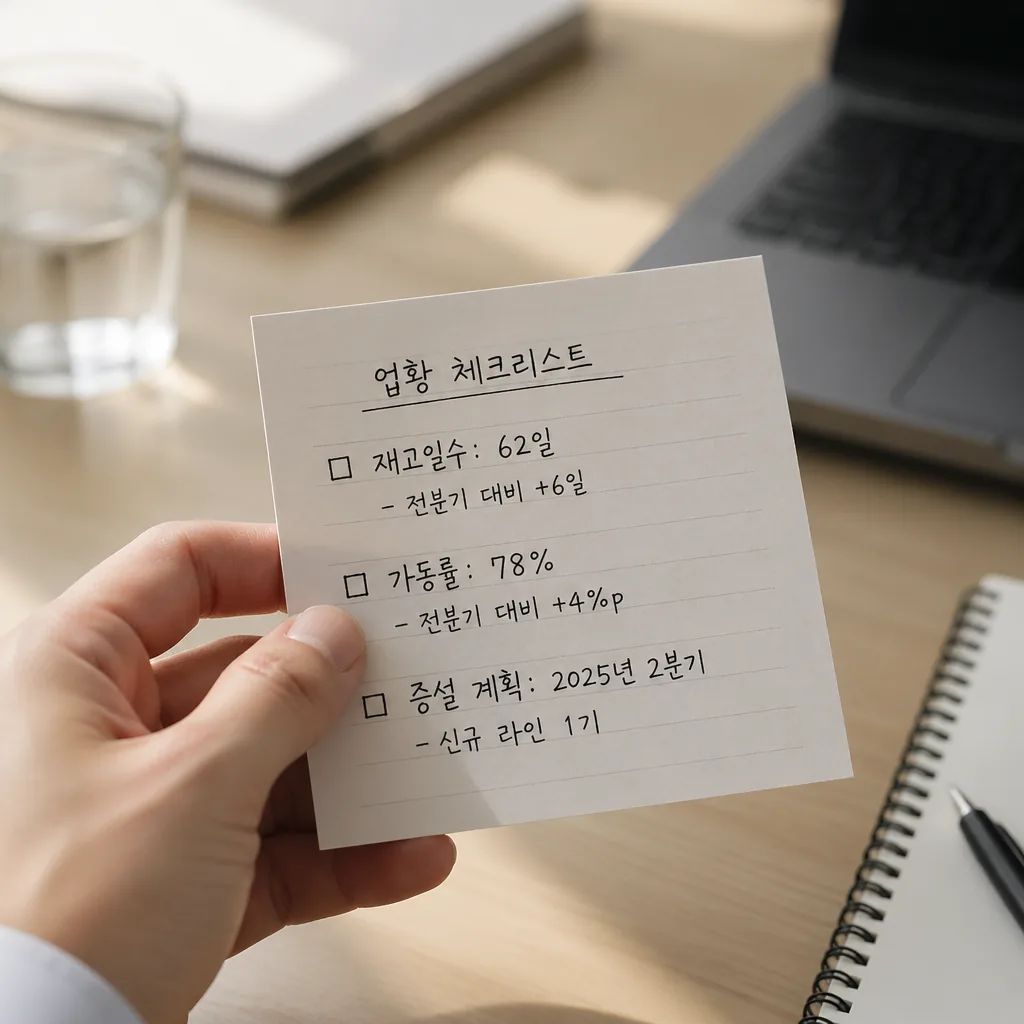 업황 체크리스트
□ 재고일수: 62일
- 전분기 대비 +6일
□ 가동률: 78%
- 전분기 대비 +4%p
□ 증설 계획: 2025년 2분기
- 신규 라인 1기